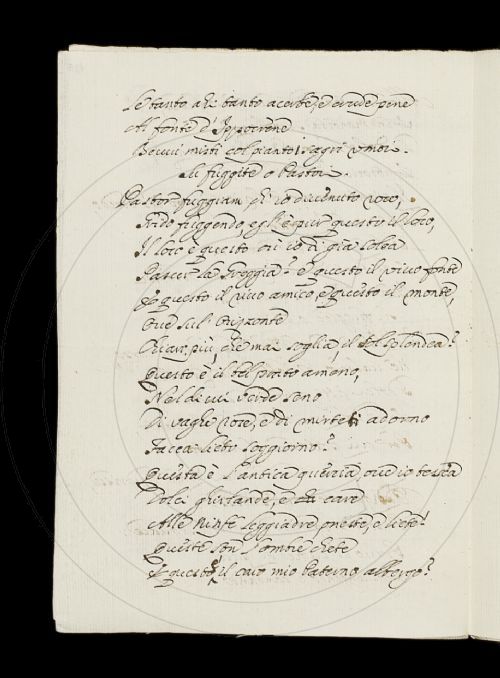 Le tanto ahi tanto acerbe, e crude pene
Al fonte d'Ippocrene
Bevvi misti col pianto i sagri umori.
Su fuggite o Pastor.
Pastor fuggiam ch'io divenuto roco,
Ardo fuggendo egl'è pur questo il loco,
Il loco è questo ov'io ti già solea
Pascer la Greggia? è questo il vivo fonte
È questo il rivo amico, è questo il monte,
Ove sul Orizonte
Chiaro più, che mai soglia, il Sol splendea?
Questo è il bel prato ameno,
Nel di cui verde seno
Di vaghe rose, e di mirteti adorno
Facea lieto soggiorno?
Questa è l'antica quercia, ove io tessea
Dolci ghirlande, e care
Alle Ninfe leggiadre oneste, e liete?
Queste son l'ombre chete
È questo il caro mio paterno albergo?